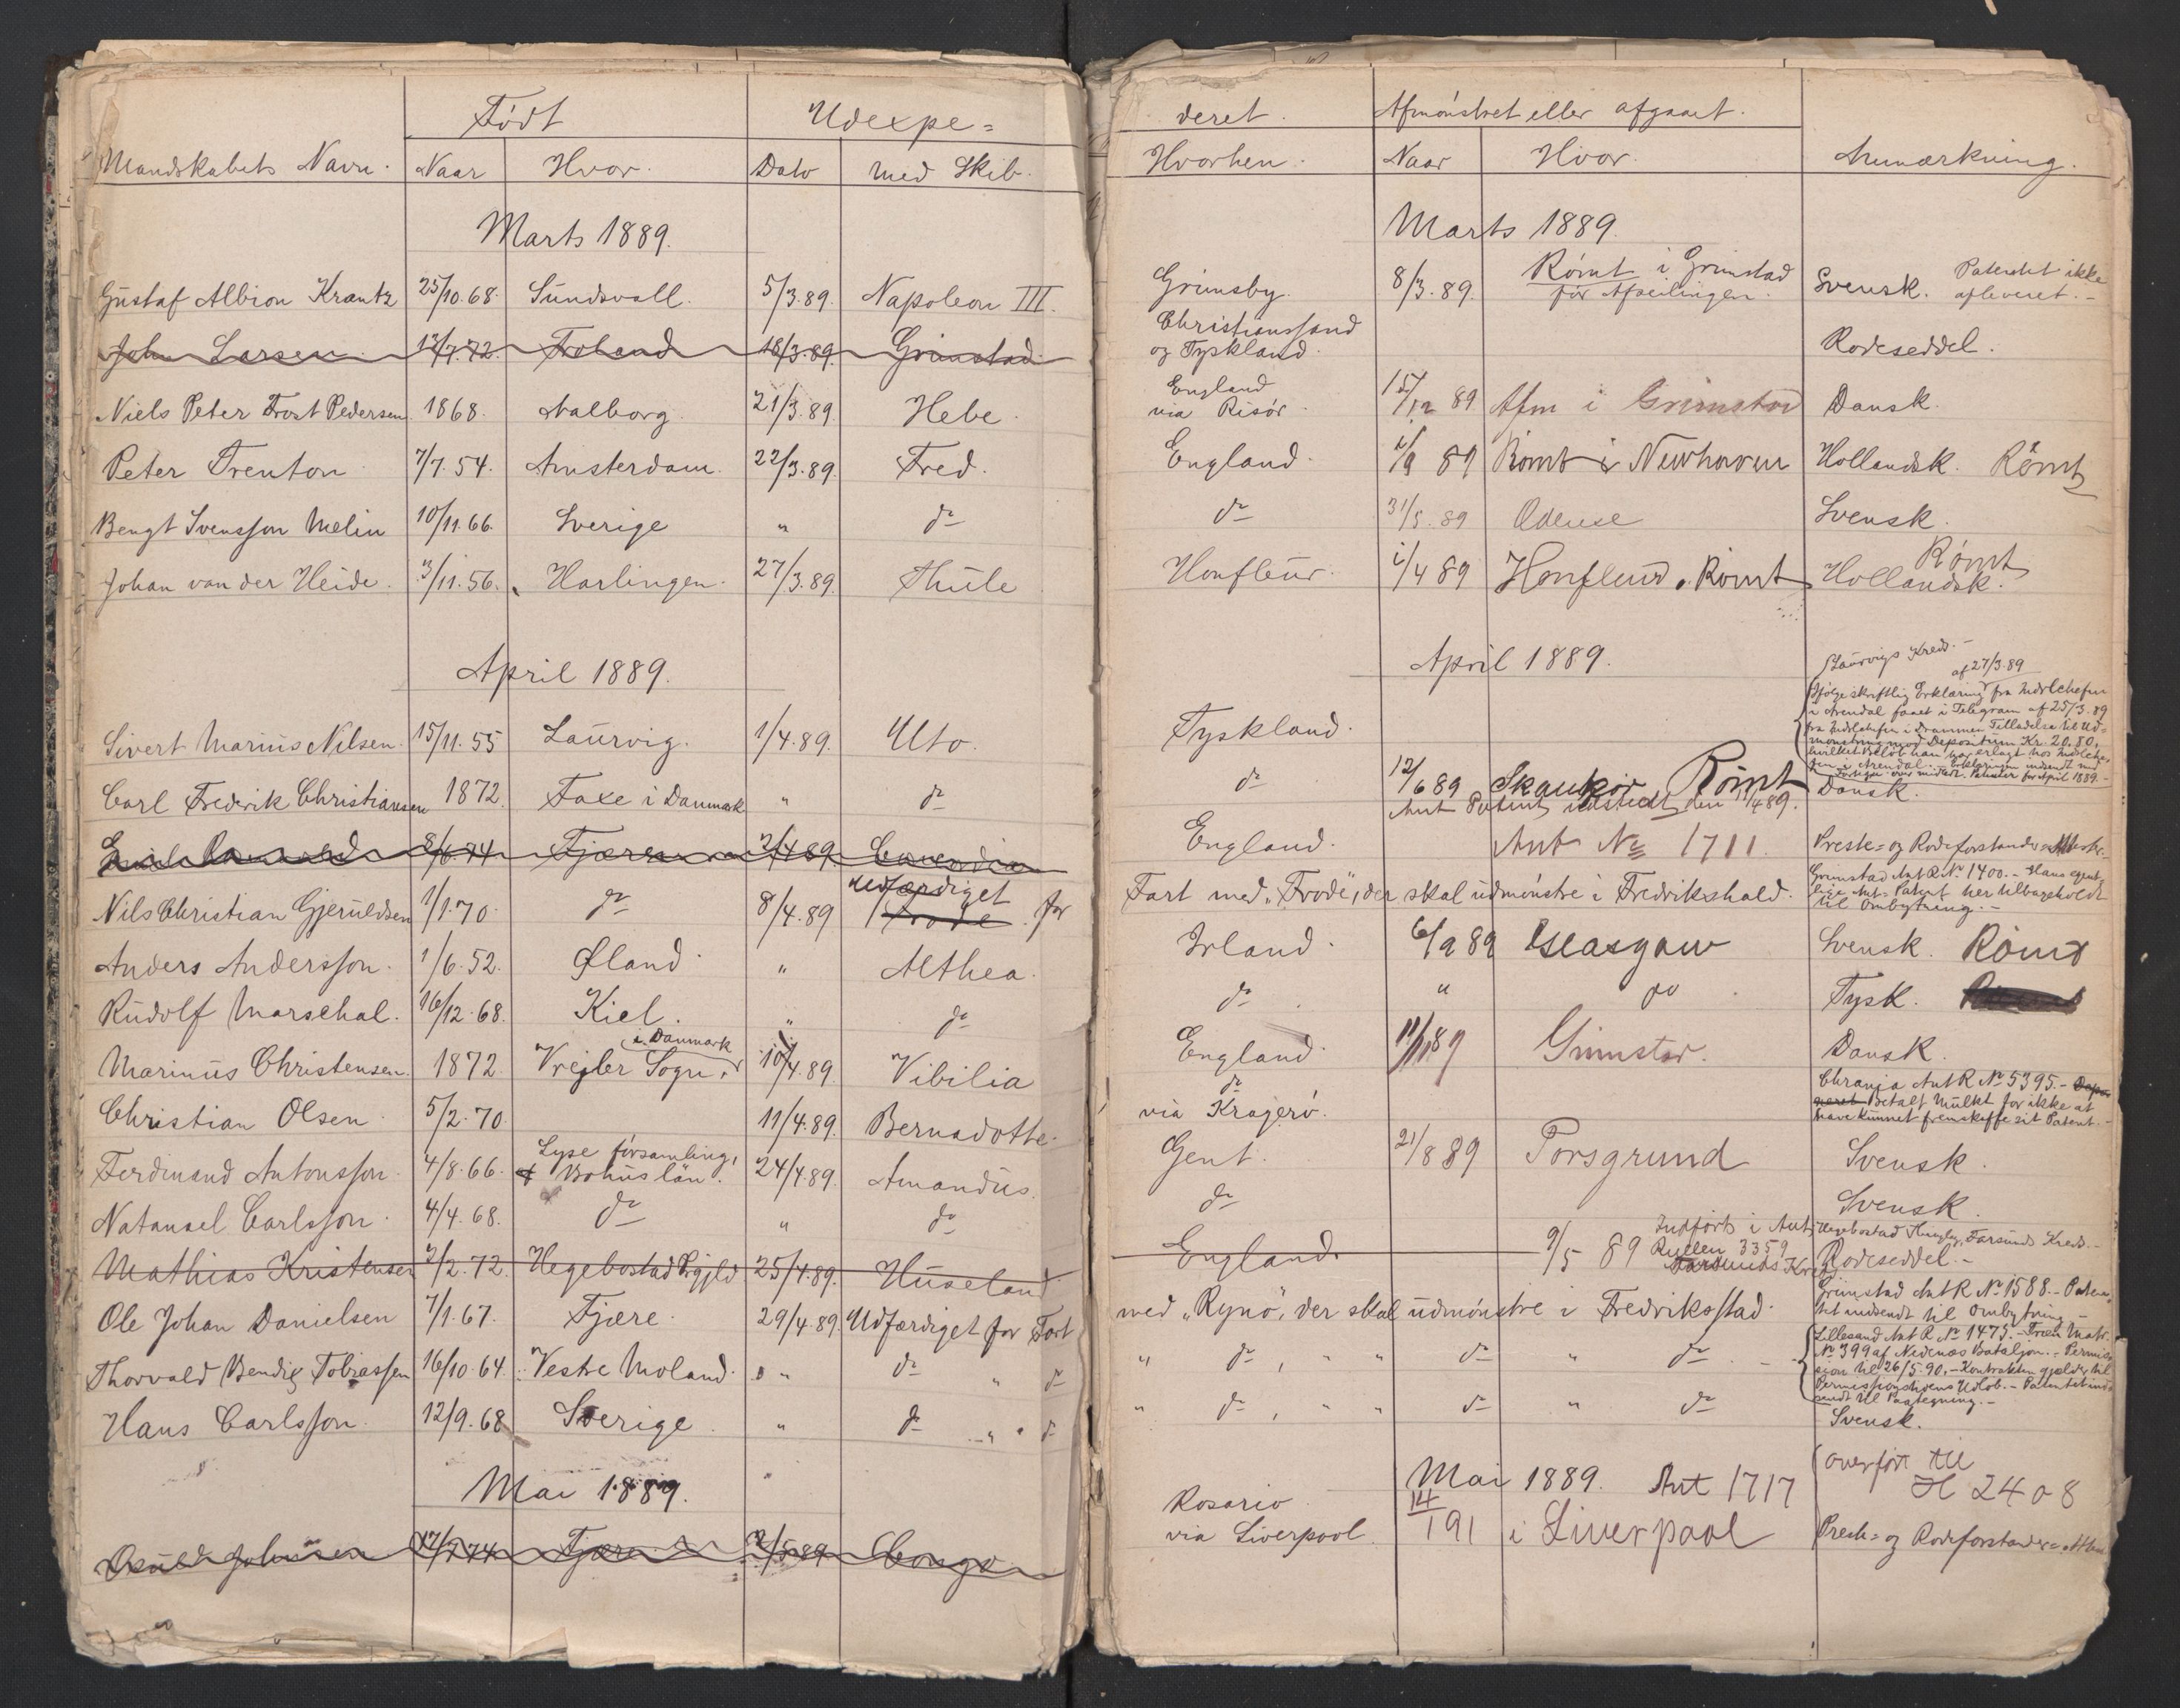 Født
Udexpe=
Mandskabets Navn. Naar Hvor. Dato med Skib.
Marts 1889.
Gustaf Albion Krantz 25/10.68. Sundsvall. 5/3.89. Napoleon III.
John Larsen 13/7.72. Froland 18/3.89. Grimstad
Niels Peter Frost Pedersen 1868. Aalborg. 21/3.89. Hebe.
Peter Trenton 7/7.54. Amsterdam. 22/3.89. Fred.
Bengt Svensson Melin 10/11.66. Sverige " do
Johan van der Heide. 3/11.56. Harlingen. 27/3.89. Thule
April 1889.
Sivert Marius Nilsen. 15/11.55 Laurvig. 1/4.89. Uto.
Carl Fredrik Christiansen 1872. Faxe i Danmark " do
8/6.74 Fjære 2/4 89
Nils Christian Gjeruldsen 1/1.70. do 8/4.89 udfærdiget Frode. for
Anders Andersson. 1/6.52. Øland. " Althea.
Rudolf Marschal. 16/12.68. Kiel. " do
Marinus Christensen. 1872 Vrejler Sogn i Danmark 10/4.89. Vibilia
Christian Olsen 5/2.70. 11/4.89. Bernadotte.
Ferdinand Antonsson. 4/8.66. Lyse församling, Bohuslän. 24/4.89. Amandus.
Natanael Carlsson. 4/4.68. do " do
Mathias Kristensen 2/2.72. Hegebostad Prgjld 25/4.89. Huseland
Ole Johan Danielsen 7/1.67. Fjære. 29/4.89. Udfærdiget for Fart
Thorvald Bendix Tobiassen 16/10.64. Vestre Moland. " do " do
Hans Carlsson. 12/9.68 Sverige. " do " do
Mai 1889.
Johnsen 74 Fjære 2/5.89. Congo
deret. Afmønstret eller afgaaet.
Hvorhen. Naar Hvor. Anmærkning.
Marts 1889.
Grimsby. 8/3.89. Rømt i Grimstad før Afseilingen. Svensk. Patentet ikke afleveret.-
Christianssand og Tyskland. Rodeseddel.
England via Risør. 15/12 89 Afm i Grimstad Dansk.
England. 89 Rømt i Newhaven Hollandsk. Rømt
do 31/5.89 Odense Svensk.
Honfleur. /4 89 Honfleur. Rømt Hollandsk. Rømt
April 1889.
Laurvigs Kreds.-
af 27/3.89
Ifølge skriftlig Erklæring fra Indrlchefen
i Arendal faaet i Telegram af 25/3.89
fra Indrlchefen i Drammen Tilladelse til Ud-
mønstring mod Depositum Kr. 20.80,
hvilket Beløb han har erlagt hos Indlche-
fen i Arendal.- Erklæringen indsendt med
Tyskland.
do 12/6 89 Rømt Dansk.
Ant Patent udstedt den /4 89.
England. Ant No 1711. Preste= og Rodeforstander=
Fart med "Frode", der skal udmønstre i Fredrikshald. Grimstad Ant R No 1400.- Hans egent-
lige Ant= Patent her tilbageholdt
til Ombytning.-
Irland. 6/9 89 Glasgow Svensk. Rømt
do " do Tysk.
England. 11/11 89 Grimstad. Dansk.
do via Kragerø. Chrania Ant R No 5395.-
betalt Mulkt for ikke at
have kunnet fremskaffe sit Patent.-
Gent. 21/8 89 Porsgrund Svensk.
do Svensk.
England. 9/5 89 Indført i Ant Rullen 3359 Farsunds Kreds Hegebostad Thinglag, Farsunds Kreds.- Rodeseddel.-
med "Ryno", der skal udmønstre i Fredriksstad. Grimstad Ant R No 1588.- Paten-
tet indsendt til Ombytning.-
" do, " " do " do Lillesand Ant R No 1475.- Matr.
No 399 af Nedenæs Bataljon.- Permis-
sion til 26/5.90.- Kontrakten gjelder til
Permissionstidens Udløb.- Patentet ind-
sendt til Paategning.-
" do, " " do " do Svensk.
Mai 1889. Ant 1717 overført til H 2408
Rosario via Liverpool 14/1 91 i Liverpool Prest= og Rodeforstander=